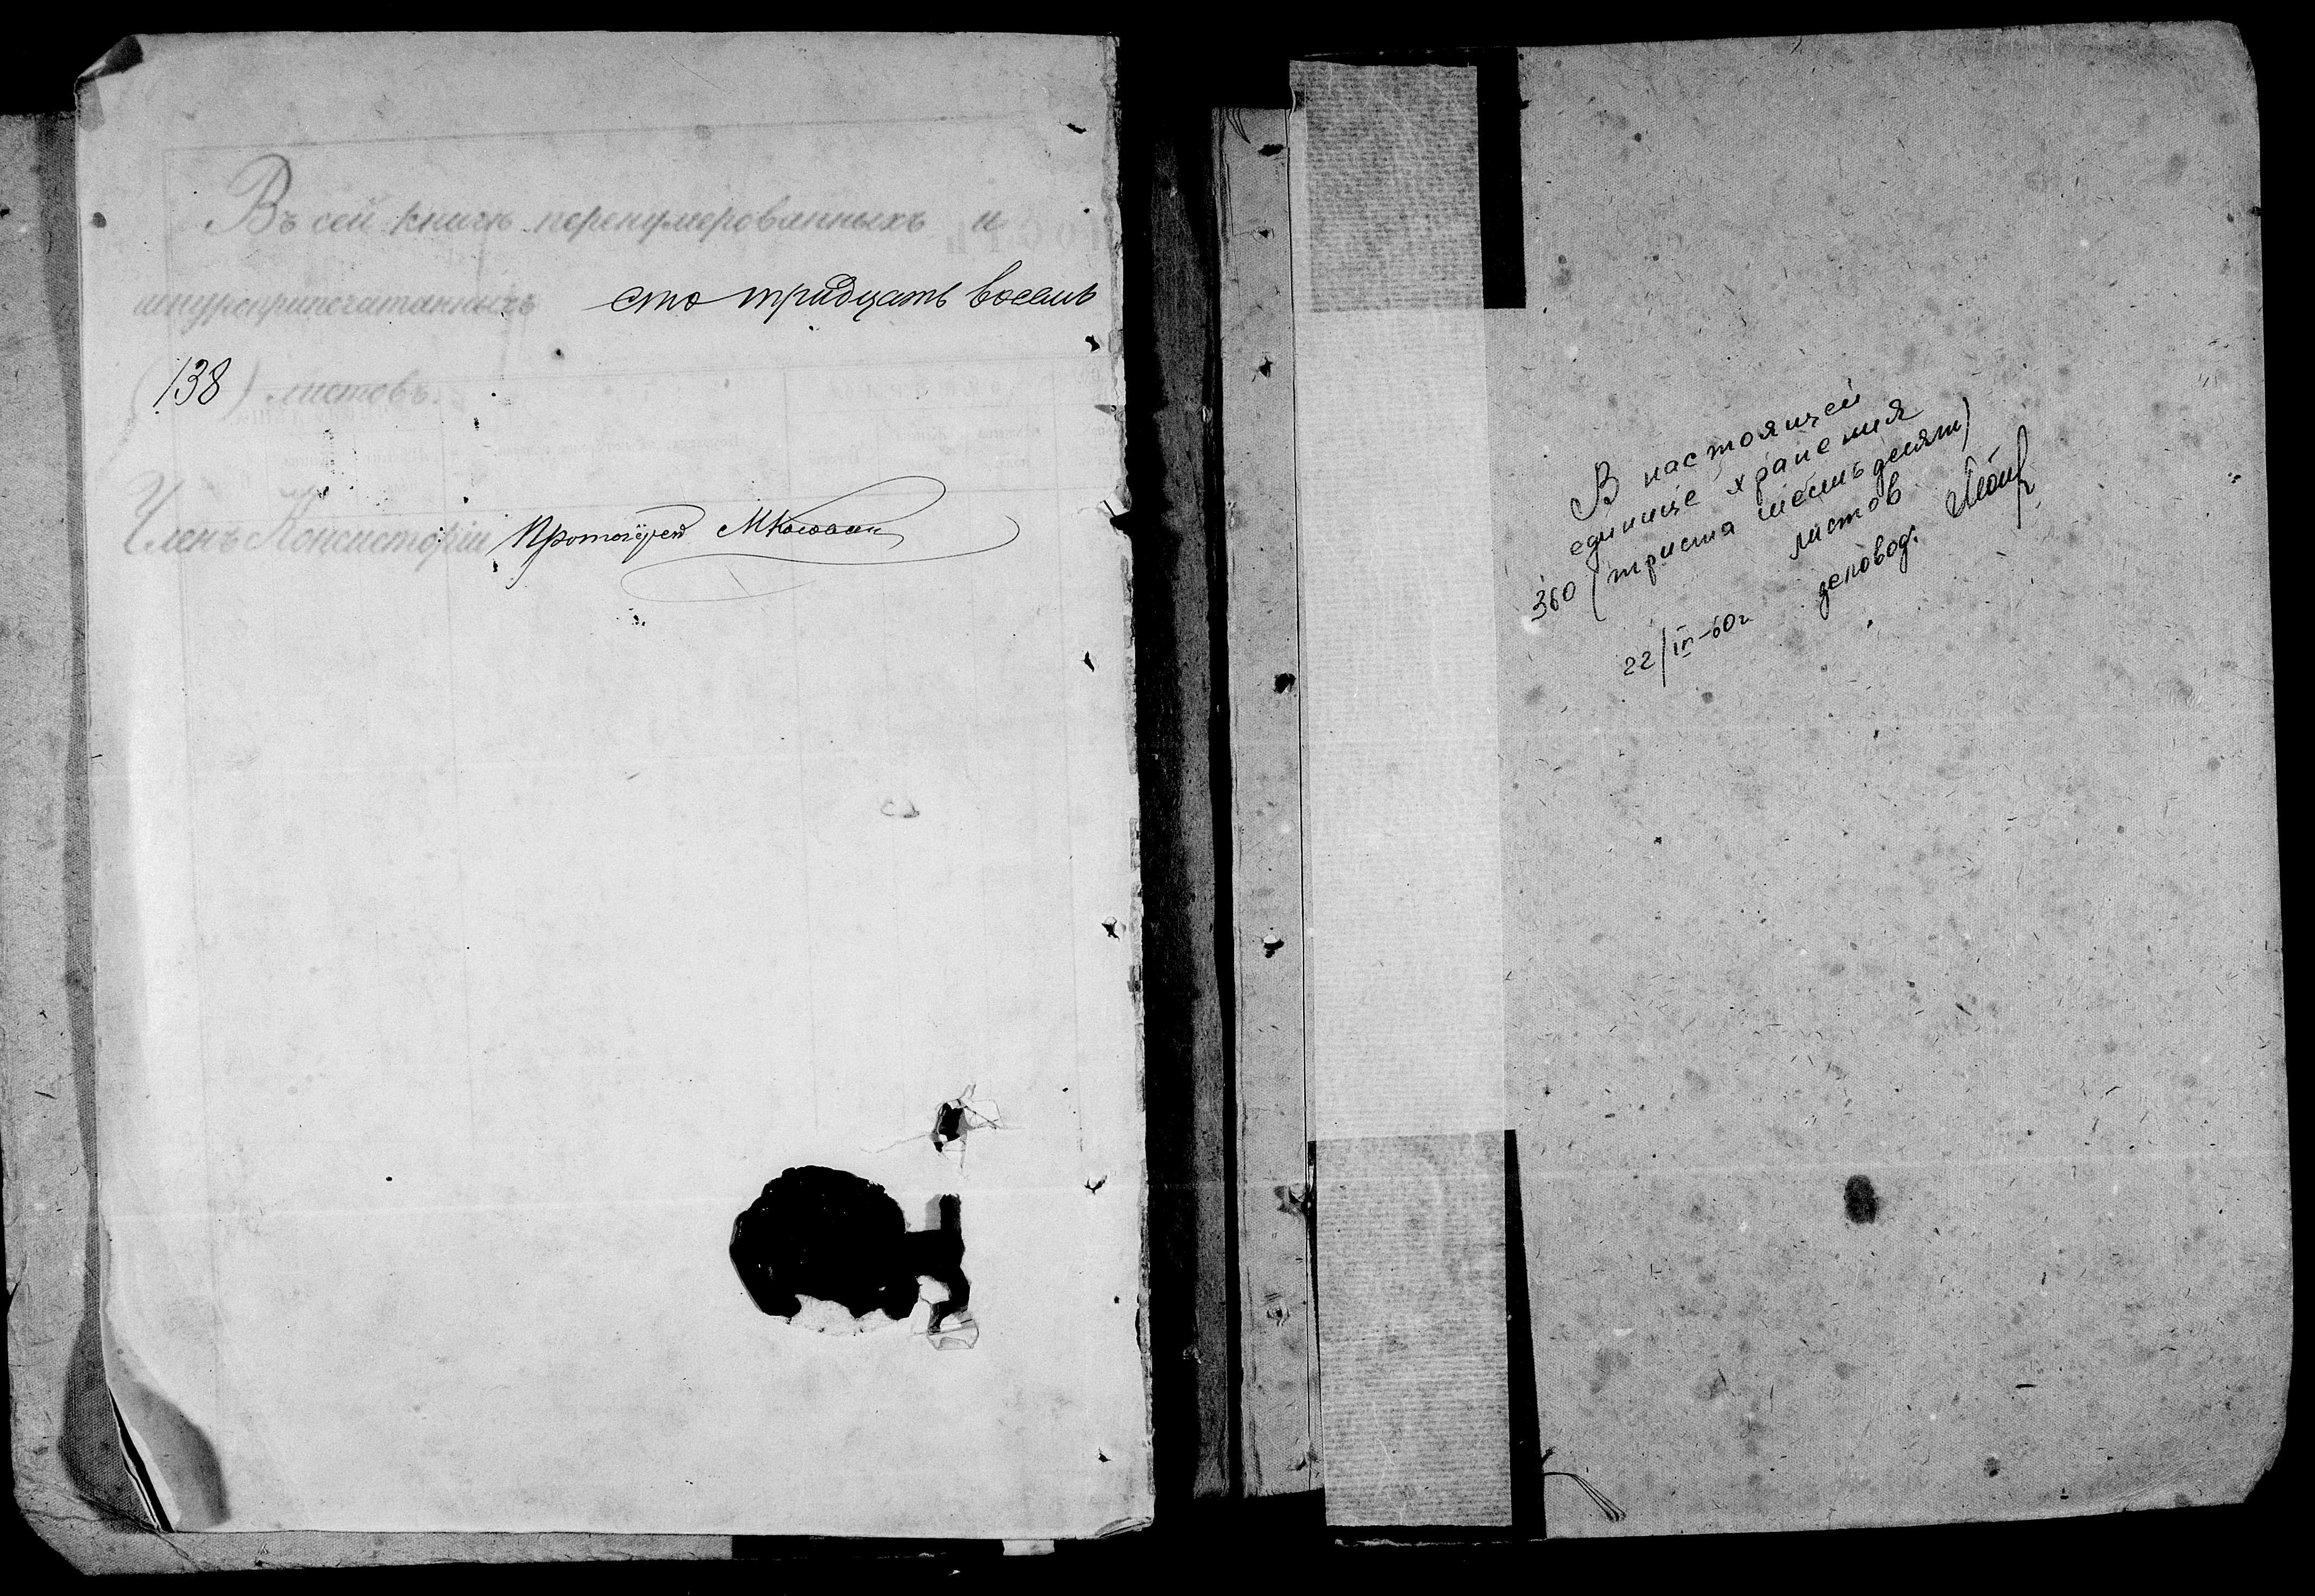 Въ сей книгѣ перенумерованныхъ и
шнуроприпечатанныхъ сто тридцать восемь
(138) листовъ.
Членъ Консисторіи Протоіерей
В настоящей
единице хранения
360 (триста шестьдесят)
листов
22/IV-60г. деловод.